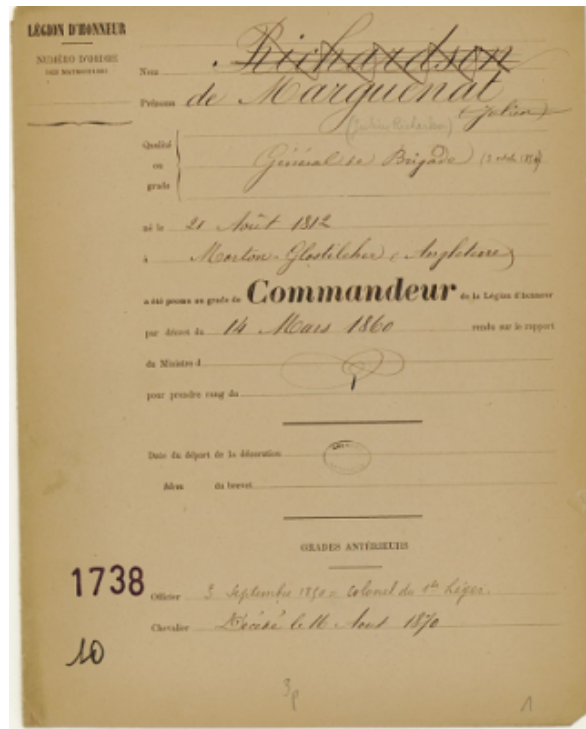 LÉGION D'HONNEUR
NUMÉRO D'ORDRE
DES MATRICULES
Nom Richardson
Prénoms de Marguenat
Julien
(Julien Richardson)
Qualité
ou
grade
Général de Brigade
né le 21 Août 1812
à Morton-Glostilcher (Angleterre)
a été promu au grade de Commandeur de la Légion d'honneur
par décret du 14 Mars 1860 rendu sur le rapport
du Ministre d
pour prendre rang du
Date du départ de la décoration
Idem du brevet
GRADES ANTÉRIEURS
1738
Officier 3 Septembre 1850 = Colonel du 1er Léger.
Chevalier Décédé le 16 Aout 1870
10
3p
1